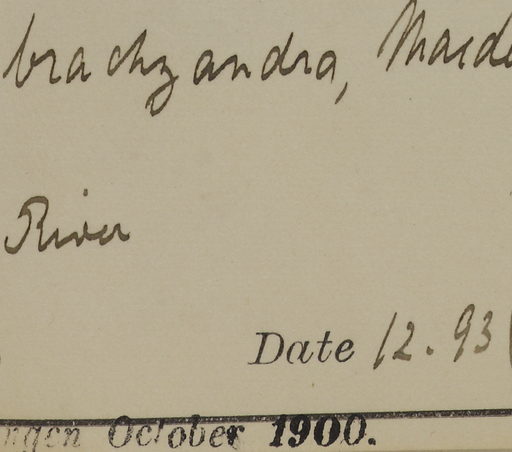 brachyandra, Maido
River
Date 12.93
ngen October 1900.